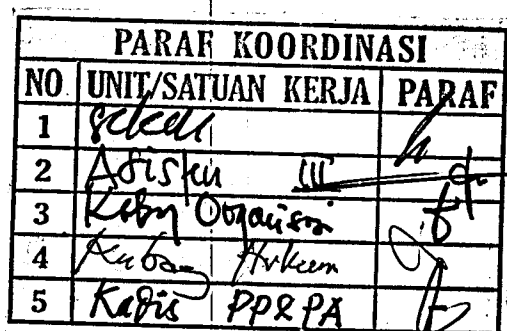 PARAF KOORDINASI
NO UNIT/SATUAN KERJA PARAF
1 Sekda
2 Asisten III
3 Kabag Organisasi
4 Kabag Hukum
5 Kadis PP & PA